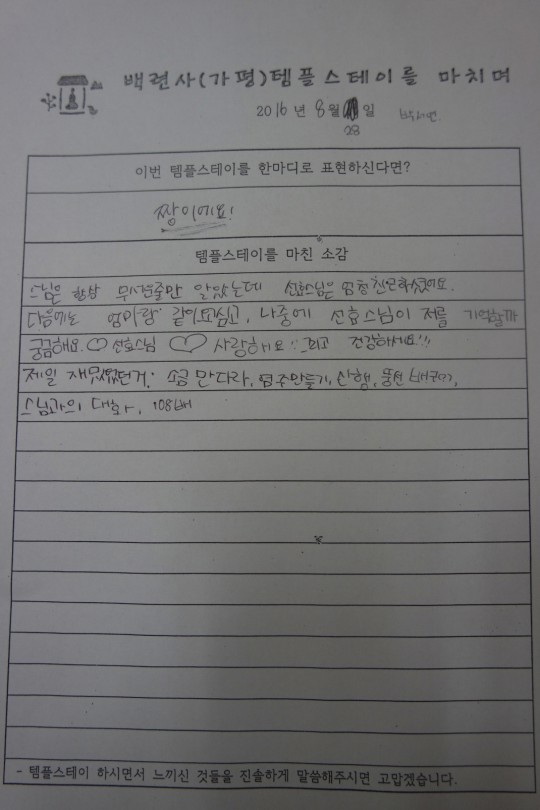 백련사(가평)템플스테이를 마치며
2016년 8월 일
28
이번 템플스테이를 한마디로 표현하신다면?
짱이에요!
템플스테이를 마친 소감
스님은 무서운줄만 알았는데 선효스님은 엄청친근하셨어요.
다음에는 엄마랑 같이오고싶고, 나중에 선효스님이 저를 기억할까
궁금해요. ♡ 선효스님 ♡ 사랑해요!! 그리고 건강하세요!!
제일 재밌었던거: 소금 만다라, 염주만들기, 산행, 풍선 배구,
스님과의 대화, 108배
- 템플스테이 하시면서 느끼신 것들을 진솔하게 말씀해주시면 고맙겠습니다.